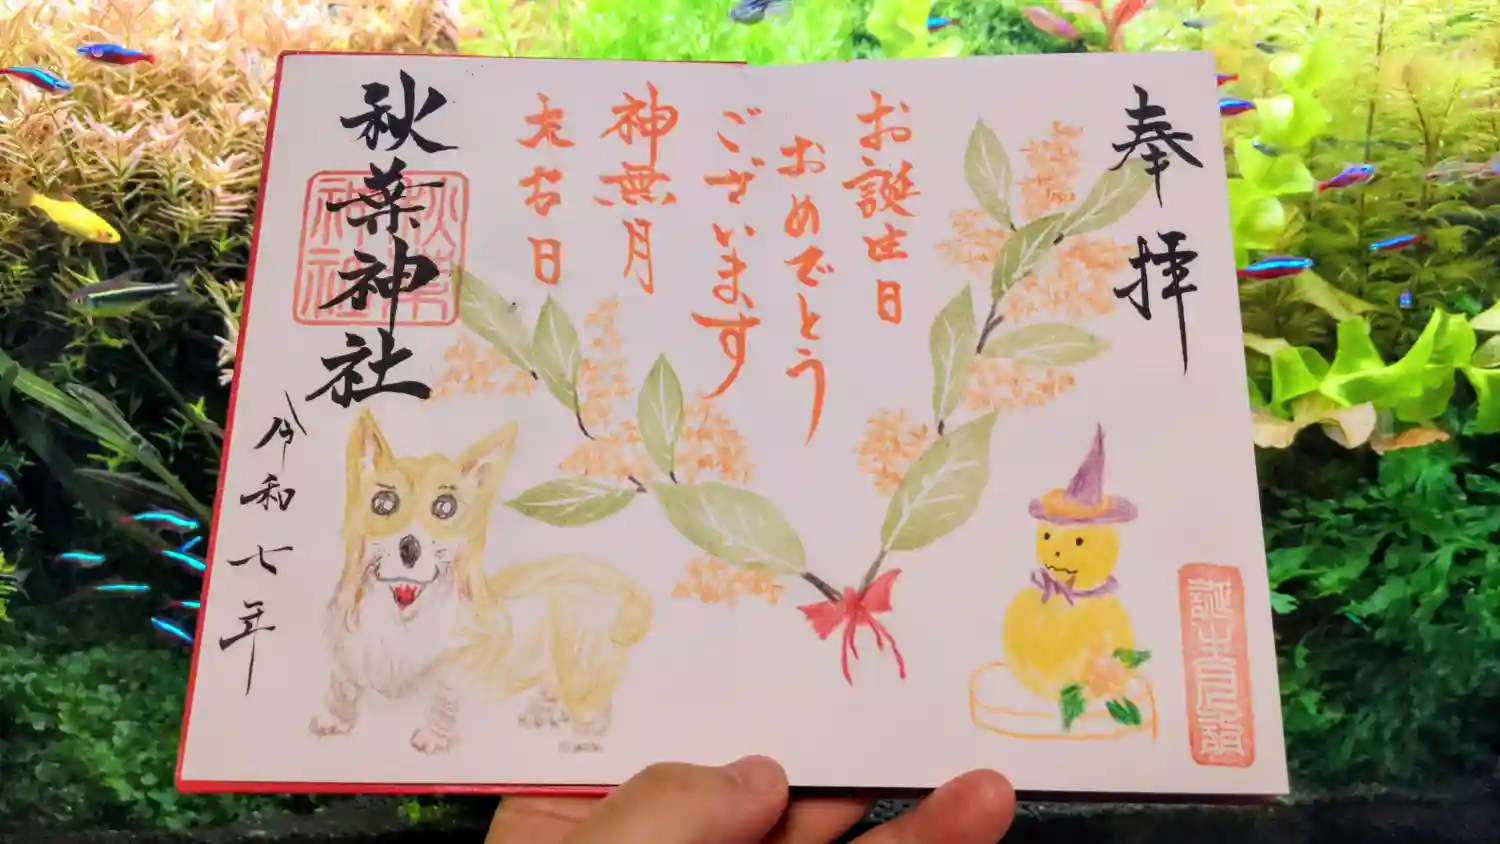 奉拝
お誕生日
おめでとう
ございます
神無月
大吉日
秋葉神社
秋葉
神社
令和七年